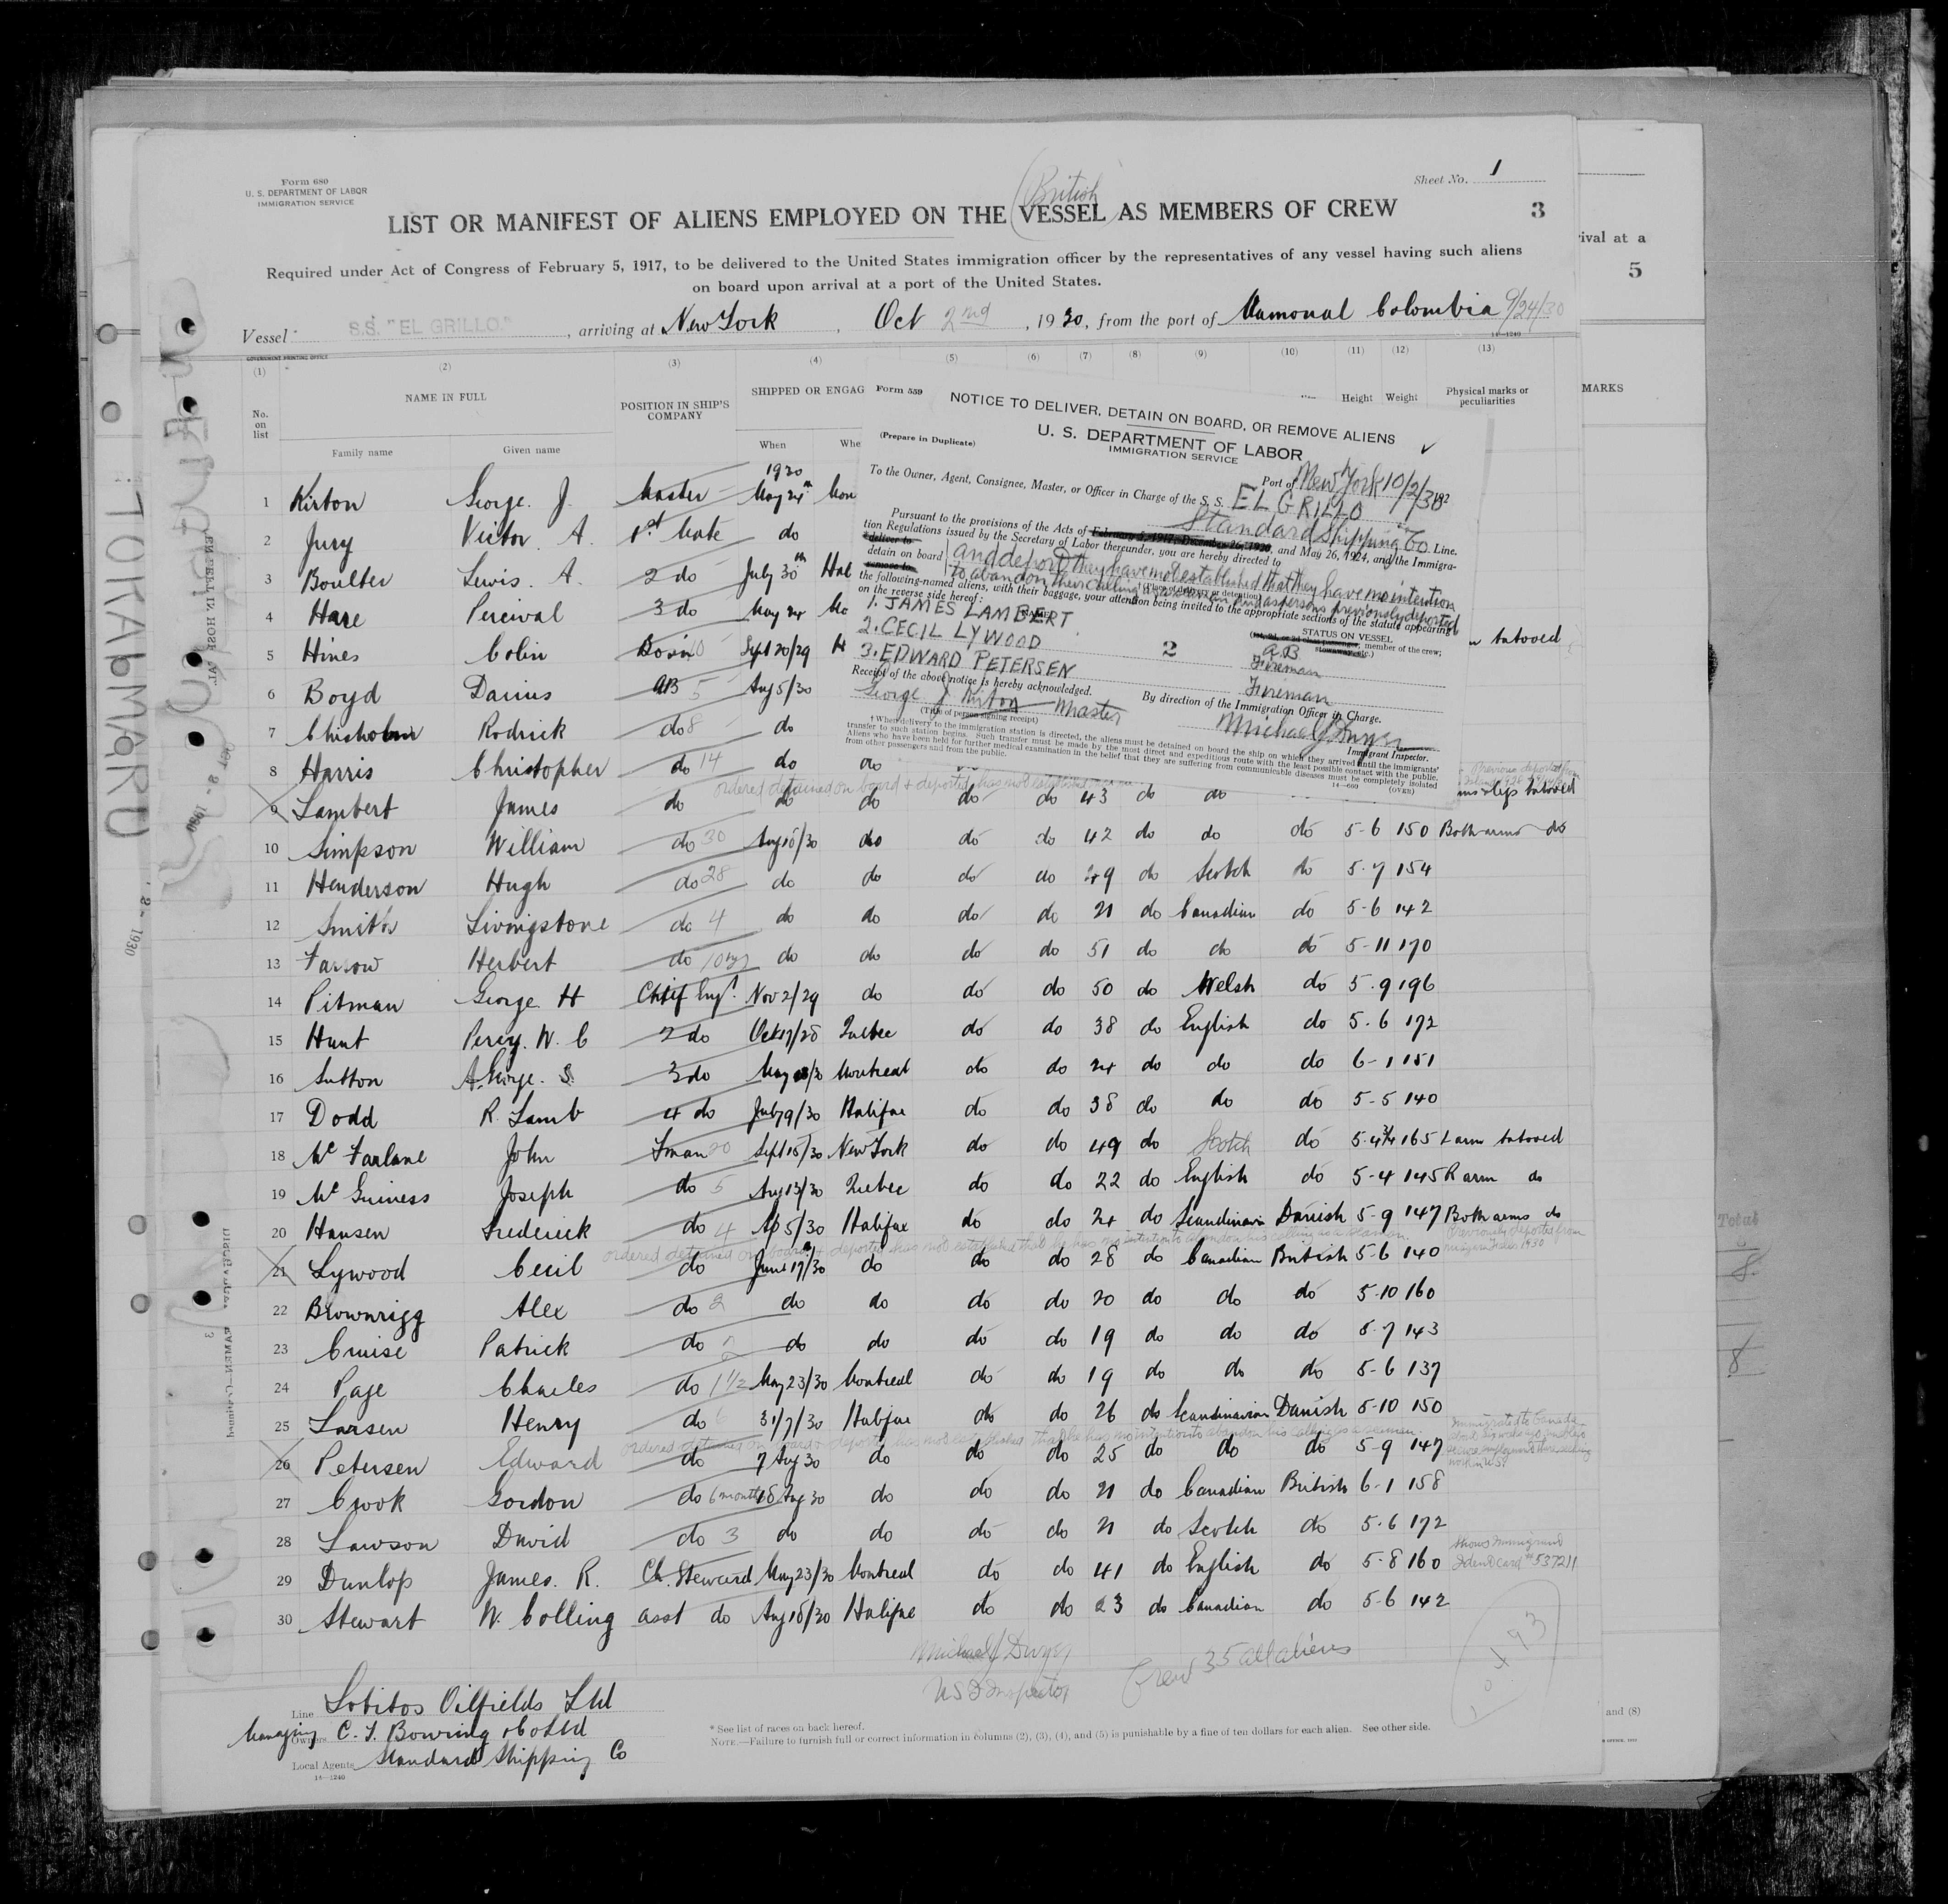 Form 680
U. S. DEPARTMENT OF LABOR
IMMIGRATION SERVICE
Sheet No. 1
(British
LIST OR MANIFEST OF ALIENS EMPLOYED ON THE VESSEL AS MEMBERS OF CREW
3
Required under Act of Congress of February 5, 1917, to be delivered to the United States immigration officer by the representatives of any vessel having such aliens
on board upon arrival at a port of the United States.
Vessel S.S. "EL GRILLO", arriving at New York, Oct 2nd, 1930, from the port of Mamonal Colombia 9/24/30
14—1240
GOVERNMENT PRINTING OFFICE
(1) (2) (3) (4) (5) (6) (7) (8) (9) (10) (11) (12) (13)
No. on list
NAME IN FULL
Family name Given name
POSITION IN SHIP'S COMPANY
SHIPPED OR ENGAG
When Whe
Height Weight
Physical marks or peculiarities
1930
1 Kirton George. J. Master May 24th Mon
2 Jury Victor. A. 1st Mate do
3 Boulter Lewis. A. 2 do July 30th Hal
4 Hare Percival 3 do May 24 Mo
5 Hines Colin Bosin 10 Sept 20/29 H tatooed
6 Boyd Darius AB 5 Aug 5/30
7 Chisholm Rodrick do 8 do
8 Harris Christopher do 14 do do
ordered detained on board + deported has not established
9 Lambert James do do do do do 43 do do legs tatooed
10 Simpson William do 30 Aug 18/30 do do do 42 do do do 5-6 150 Both arms do
11 Henderson Hugh do 28 do do do do 49 do Scotch do 5-7 154
12 Smith Livingstone do 4 do do do do 21 do Canadian do 5-6 142
13 Farrow Herbert do 10 yrs do do do do 51 do do do 5-11 170
14 Pitman George H Chief Engr. Nov 2/29 do do do 50 do Welsh do 5-9 196
15 Hunt Percy. W. C 2 do Oct 17/28 Quebec do do 38 do English do 5-6 172
16 Sutton A. George. S. 3 do May 28/30 Montreal do do 24 do do do 6-1 151
17 Dodd R. Lamb 4 do July 9/30 Halifax do do 38 do do do 5-5 140
18 McFarlane John Fman 20 Sept 15/30 New York do do 49 do Scotch do 5-4 3/4 165 L arm tatooed
19 McGuiness Joseph do 5 Aug 13/30 Quebec do do 22 do English do 5-4 145 R arm do
20 Hansen Frederick do 4 Ap 5/30 Halifax do do 24 do Scandinavia Danish 5-9 147 Both arms do
ordered detained on board + deported has not established that he has no intention to abandon his calling as a seaman. Previously deported from
21 Lywood Cecil do June 17/30 do do do 28 do Canadian British 5-6 140
22 Brownrigg Alex do 2 do do do do 20 do do do 5-10 160
23 Cruise Patrick do 2 do do do do 19 do do do 5-7 143
24 Page Charles do 1 1/2 May 23/30 Montreal do do 19 do do do 5-6 137
25 Larsen Henry do 6 31/7/30 Halifax do do 26 do Scandinavian Danish 5-10 150
ordered detained on board + deported has not established that he has no intention to abandon his calling as a seaman.
26 Petersen Edward do 7 Aug 30 do do do 25 do do do 5-9 147
27 Crook Gordon do 6 months 18 Aug 30 do do do 21 do Canadian British 6-1 158
28 Lawson David do 3 do do do do 21 do Scotch do 5-6 172
29 Dunlop James. R. Ch. Steward May 23/30 Montreal do do 41 do English do 5-8 160 Shows Immigrant Ident Card No 537211
30 Stewart W. Colling asst do Aug 18/30 Halifax do do 23 do Canadian do 5-6 142
Form 559
NOTICE TO DELIVER, DETAIN ON BOARD, OR REMOVE ALIENS
(Prepare in Duplicate)
U. S. DEPARTMENT OF LABOR
IMMIGRATION SERVICE
Port of New York 10/2/30 192
To the Owner, Agent, Consignee, Master, or Officer in Charge of the S. S. EL GRILLO
Standard Shipping Co Line.
Pursuant to the provisions of the Acts of February 5, 1917, December 26, 1920, and May 26, 1924, and the Immigra-
tion Regulations issued by the Secretary of Labor thereunder, you are hereby directed to
deliver to
detain on board
remove to
and deport they have not established that they have no intention
to abandon their calling as seaman and as persons previously deported
the following-named aliens, with their baggage, your attention being invited to the appropriate sections of the statute appearing
on the reverse side hereof:
STATUS ON VESSEL
member of the crew;
1. JAMES LAMBERT A.B
2. CECIL LYWOOD Fireman
3. EDWARD PETERSEN Fireman
2
Receipt of the above notice is hereby acknowledged.
George J Kirton Master
(Title of person signing receipt)
By direction of the Immigration Officer in Charge.
Michael J Dwyer
Immigrant Inspector.
† When delivery to the immigration station is directed, the aliens must be detained on board the ship on which they arrived until the immigrants'
transfer to such station begins. Such transfer must be made by the most direct and expeditious route with the least possible contact with the public.
Aliens who have been held for further medical examination in the belief that they are suffering from communicable diseases must be completely isolated
from other passengers and from the public.
14—660 (OVER)
Michael J Dwyer
US I Inspector
Crew 35 all aliens
Line Lobitos Oilfields Ltd
Managing Owners C. T. Bowring & Co Ltd
Local Agents Standard Shipping Co
14—1240
* See list of races on back hereof.
NOTE.—Failure to furnish full or correct information in columns (2), (3), (4), and (5) is punishable by a fine of ten dollars for each alien. See other side.
rival at a
5
MARKS
Total
8
8
and (8)